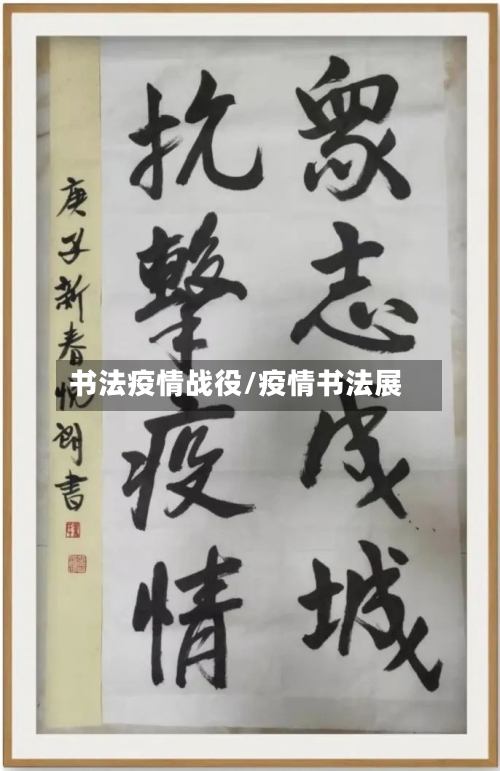 眾志成城
抗擊疫情
庚子新春悦朗書
书法疫情战役/疫情书法展